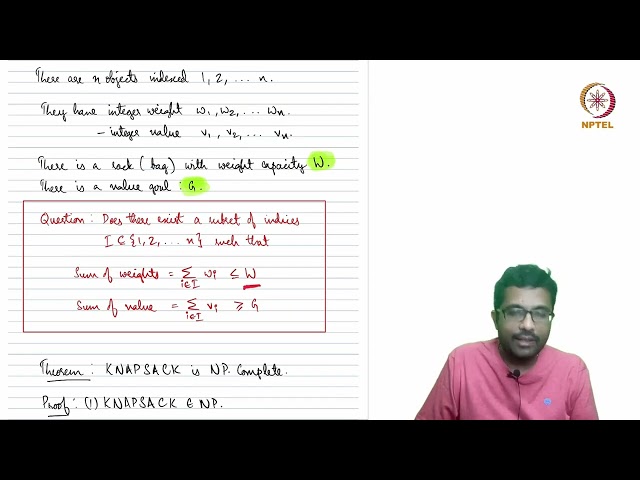 There are n objects indexed 1, 2, ... n.
They have integer weight w₁, w₂, ... wₙ.
- integer value v₁, v₂, ... vₙ.
There is a sack (bag) with weight capacity W.
There is a value goal : G.
Question : Does there exist a subset of indices
I ⊂ {1, 2, ... n} such that
Sum of weights = ∑ᵢ∈I wᵢ ≤ W
Sum of value = ∑ᵢ∈I vᵢ ≥ G
Theorem : KNAPSACK is NP-Complete.
Proof : (1) KNAPSACK ∈ NP.
NPTEL